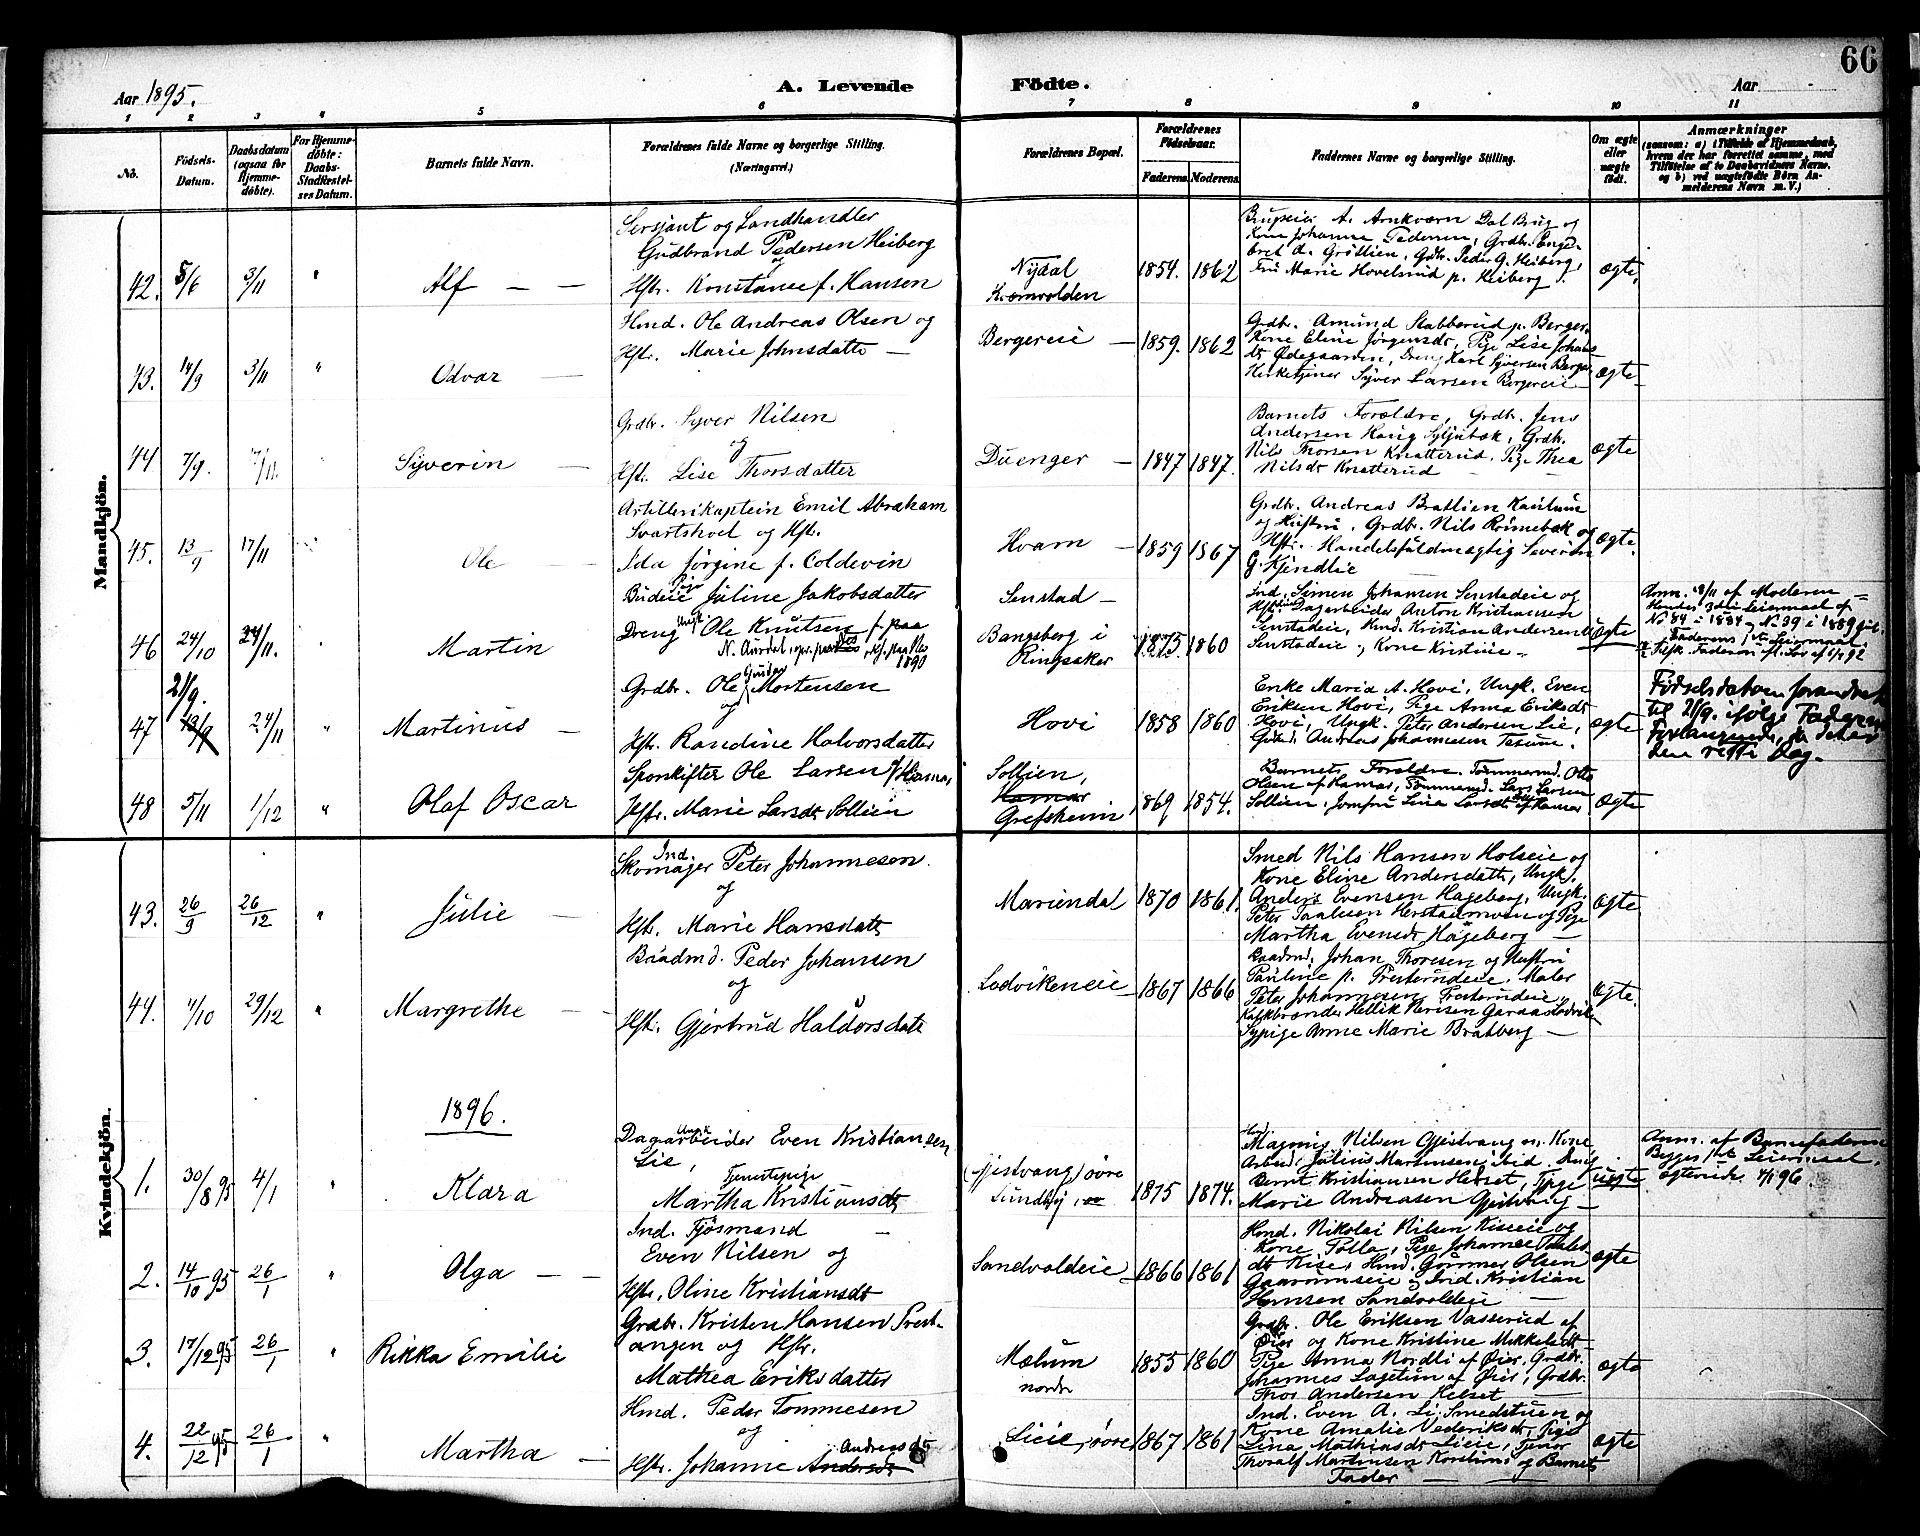 66
Aar 1895.
A. Levende Födte.
Aar
1 2 3 4 5 6 7 8 9 10 11
No.
Födsels-
Datum.
Daabsdatum
(ogsaa for
Hjemme-
döbte).
For Hjemme-
döbte:
Daabs-
Stadfæstel-
ses Datum.
Barnets fulde Navn.
Forældrenes fulde Navne og borgerlige Stilling.
(Næringsvei.)
Forældrenes Bopæl.
Forældrenes
Födselsaar.
Faderens. Moderens.
Faddernes Navne og borgerlige Stilling.
Om ægte
eller
uægte
födt.
Anmærkninger
(saasom: a) i Tilfælde af Hjemmedaab,
hvem der har forrettet samme, med
Tilföielse af to Daabsvidners Navne.
og b) ved uægtefödte Börn An-
melderens Navn m. V.)
Mandkjön.
42. 5/6 3/11 " Alf
Sersjant og Landhandler
Gudbrand Pedersen Heiberg
og
Hstr. Konstance f. Hansen
Nydal
Kværnvolden
1854. 1862
Brugseier A. Arnkværn Dal Brug og
Kone Johanne Pedersen, Grdbr. Enge-
bret O. Gröttien, Gdbr. Peder G. Heiberg,
Fru Marie Hovelsrud p. Heiberg.
ægte,
43. 14/9 3/11 " Odvar
Hmd. Ole Andreas Olsen og
Hstr. Marie Johnsdatte
Bergereie
1859. 1862
Grdbr. Amund Stabberud p. Berger,
Kone Eline Jørgensdt, Pige Lise Johans
dt Ødegaarden, Dreng Karl Syversen Berger,
Kirketjener Syver Larsen Bergereie
ægte
44 7/9. 7/11. Syverin
Grdbr. Syver Nilsen
og
Hstr. Lise Thorsdatter
Duenger
1847 1847.
Barnets Forældre, Grdbr. Jens
Andersen Haug Syljubæk, Grdbr.
Nils Thorsen Knatterud, Pige Thea
Nilsdt Knatterud
ægte
45. 13/9 17/11 Ole
Artillerikaptein Emil Abraham
Svartshoel og Hstr.
Ida Jørgine f. Coldevin
Hvam
1859 1867
Grdbr. Andreas Bratlien Kaulum
og Hustru, Grdbr. Nils Rømebæk og
Hstr. Handelsfuldmægtig Severin
G. Kjendlie
ægte.
46 24/10 24/11. Martin
Budeie Pige Juline Jakobsdatter
Dreng Ungk. Ole Knutsen f. paa
N. Aurdal, opr. paa Nes, kf. paa Nes
1890
Senstad
Bangsberg i
Ringsaker
1875 1860
Ind. Simen Johansen Senstadeie og
Hstr. Dagarbeider Anton Kristiansen
Senstadeie, Hmd. Kristian Andersen
Senstadeie, Kone Kristine
uægte
Anm. 18/11 af Moderen
Hendes 3die Leiermaal cf.
No 84 i 1884 og No. 39 i 1889 Jul.
Faderens 1ste Leiermaal
47 21/9. 13/9 24/11 " Martinus
Grdbr. Ole Gunder Mortensen
og
Hstr. Randine Halvorsdatter
Hovi
1858 1860
Enke Maria A. Hovi, Ungk. Even
Eriksen Hovi, Pige Anna Eriksdt
Hovi, Ungk. Peter Andersen Lie,
Gdbd. Andreas Johannesen Tesum.
ægte
Födselsdatoen forandret
til 21/9. ifølge Faderens
Forlangende, da det er
den rette Dag.
48 5/11 1/12 " Olaf Oscar
Sponskifter Ole Larsen af Hamar,
Hstr. Marie Larsdt Sollien
Sollien,
Hamar
Grefsheim
1869 1854.
Barnets Forældre, Tömmermd. Otto
Olsen af Hamar, Tömmermd. Lars Larsen
Sollien, Jomfru Lina Larsdt af Hamar
ægte
Kvindekjön.
43. 26/9 26/12 " Julie
Ind.
Skomager Peter Johannesen
og
Hstr. Marie Hansdatt
Mariendal
1870 1861.
Smed Nils Hansen Holseie og
Kone Eline Andersdatt, Ungk.
Anders Evensen Hageberg, Ungk.
Peter Paulsen Herstadmoen og Pige
Martha Evensdt Hageberg
ægte
44. 4/10 29/12 " Margrethe
Baadmd. Peder Johansen
og
Hstr. Gjertrud Haldorsdatt
Lodvikeneie
1867 1866
Baadmd. Johan Thoresen og Hustru
Pauline p. Presterudeie, Maler
Peter Johannesen Presterudeie,
Kalkbrænder Hellik Iversen Garaaslodvik
Sypige Anne Marie Bratberg
ægte.
1896.
1. 30/8 95 4/1 " Klara
Dagarbeider Ungk. Even Kristiansen
Lie,
Tjenestepige
Martha Kristiansdt
(Gjestvang) övre
Sundby,
1875 1874.
Hmd. Magnus Nilsen Gjestvang m. Kone
Arbeid. Julius Martinsen ibid, Dreng
Bernt Kristiansen Helset, Pige
Marie Andreasen Gjestvang
uægte
Anm. af Barnefaderen
Begges 1ste Leiermaal.
4/1 96.
2. 14/10 95 26/1 " Olga
Ind. Fjøsmand
Even Nilsen og
Hstr. Oline Kristiansdt
Sandvoldeie
1866 1861
Hmd. Nikolai Nilsen Kiseeie og
Kone Polla, Pige Johanne Paals-
dt Kise, Hmd. Gunmer Olsen
Gaarumseie og Ind. Kristian
Hansen Sandvoldeie
ægte
3. 17/12 95 26/1 " Rikka Emilie
Grdbr. Kristen Hansen Prest-
angen og Hstr.
Mathea Eriksdatter
Mælum
nordr
1855 1860
Grdbr. Ole Eriksen Vasserud af
Øier og Kone Kristine Mikkelsdt
Pige Anna Nordli af Øier, Grdbr.
Johannes Lagetun af Øier, Grdbr.
Thor Andersen Helset
ægte
4. 22/12 95 26/1 " Martha
Hmd. Peder Tommesen
og
Hstr. Johanne Andersdt Andreasdt
Lieie, övre
1867 1861
Ind. Even A. Li Smedstuen og
Kone Amalie Vederiksdt, Pige
Lina Mathiasdt Lieie, Tjener
Thoralf Martinsen Korslund og Barnets
Fader
ægte